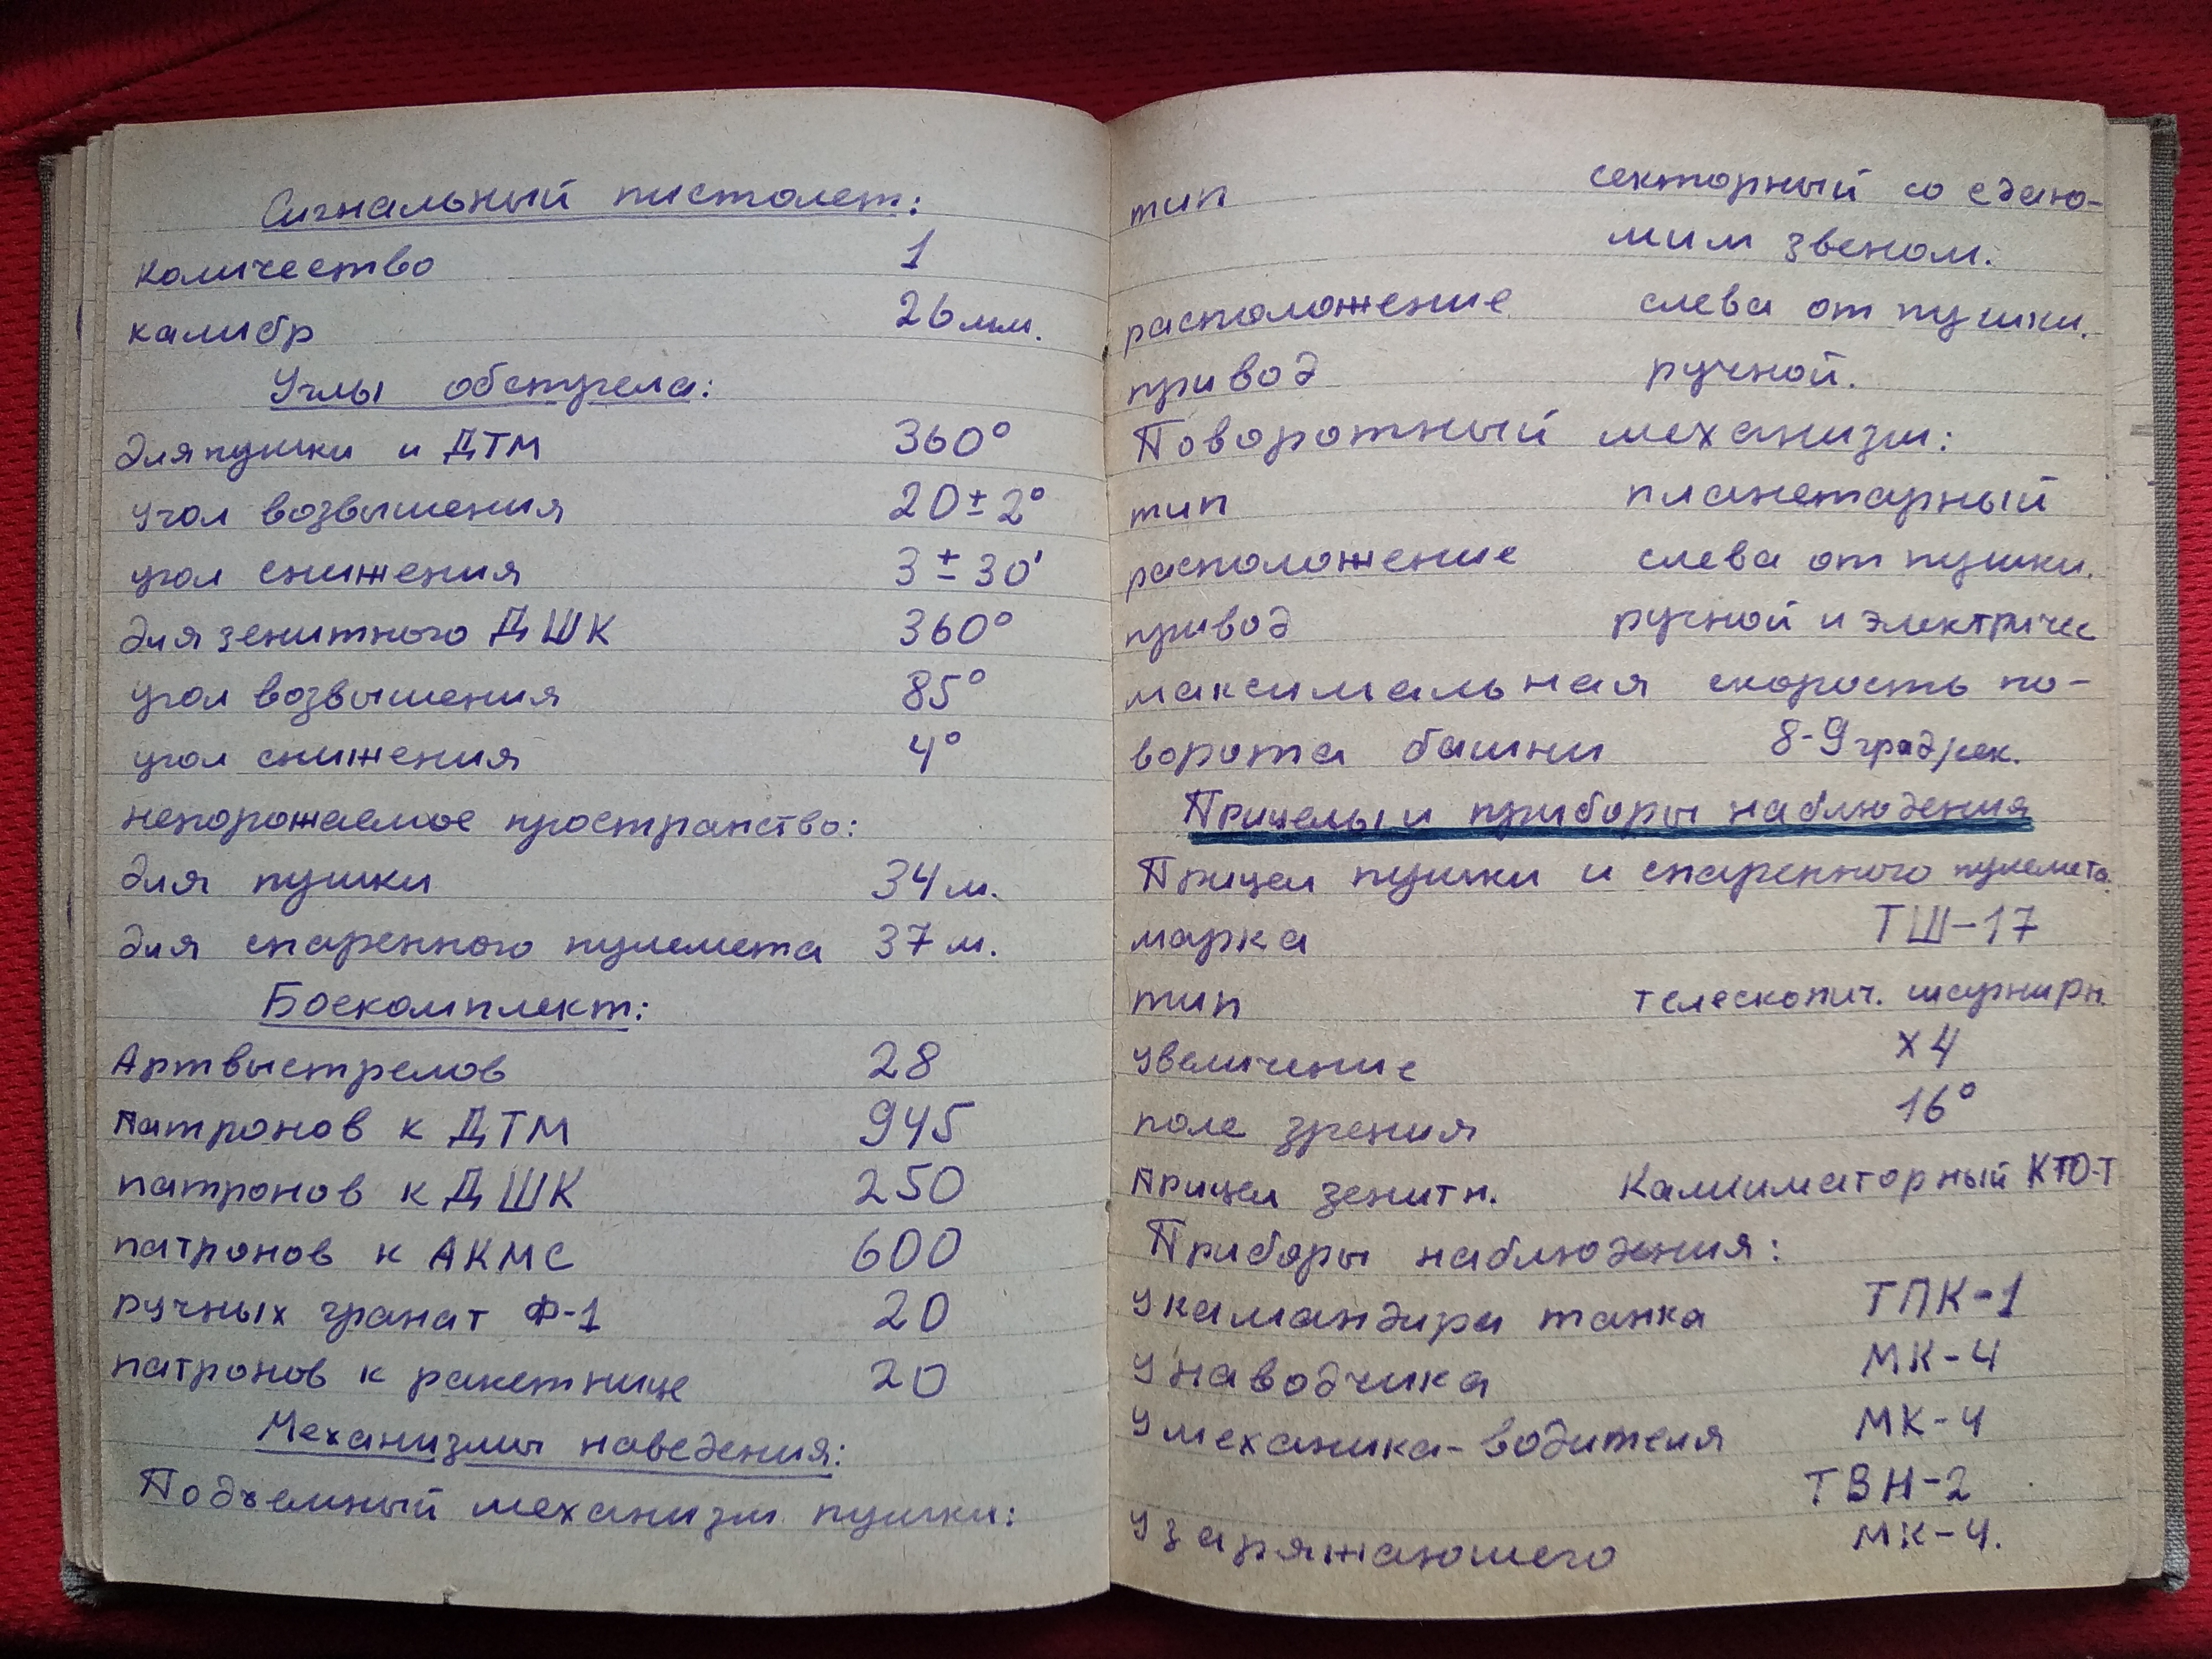 Сигнальный пистолет:
количество 1
калибр 26мм.
Углы обстрела:
для пушки и ДТМ 360°
угол возвышения 20±2°
угол снижения 3±30'
для зенитного ДШК 360°
угол возвышения 85°
угол снижения 4°
непорожаемое пространство:
для пушки 34м.
для спаренного пулемета 37м.
Боекомплект:
Артвыстрелов 28
Патронов к ДТМ 945
патронов к ДШК 250
патронов к АКМС 600
ручных гранат Ф-1 20
патронов к ракетнице 20
Механизмы наведения:
Подъемный механизм пушки:
тип секторный со сдаю-
мим звеном.
расположение слева от пушки.
привод ручной.
Поворотный механизм:
тип планетарный
расположение слева от пушки.
привод ручной и электричес
максимальная скорость по-
ворота башни 8-9град/сек.
Прицелы и приборы наблюдения
Прицел пушки и спаренного пулемета.
марка ТШ-17
тип телескопич. шарнирн.
увеличение х4
поле зрения 16°
Прицел зенитн. Калиматорный КТО-Т
Приборы наблюдения:
У камандира танка ТПК-1
У наводчика МК-4
У механика-водителя МК-4
ТВН-2
У заряжающего МК-4.